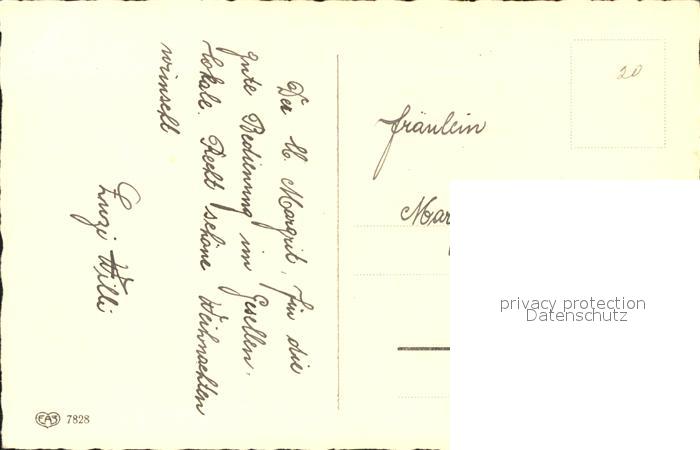 Der lb. Margrit, für die
gute Bedienung im Gesellen-
lokale. Recht schöne Weihnachten
wünscht
Luzi Willi
20
Fräulein
Mar
privacy protection
Datenschutz
EAS 7828